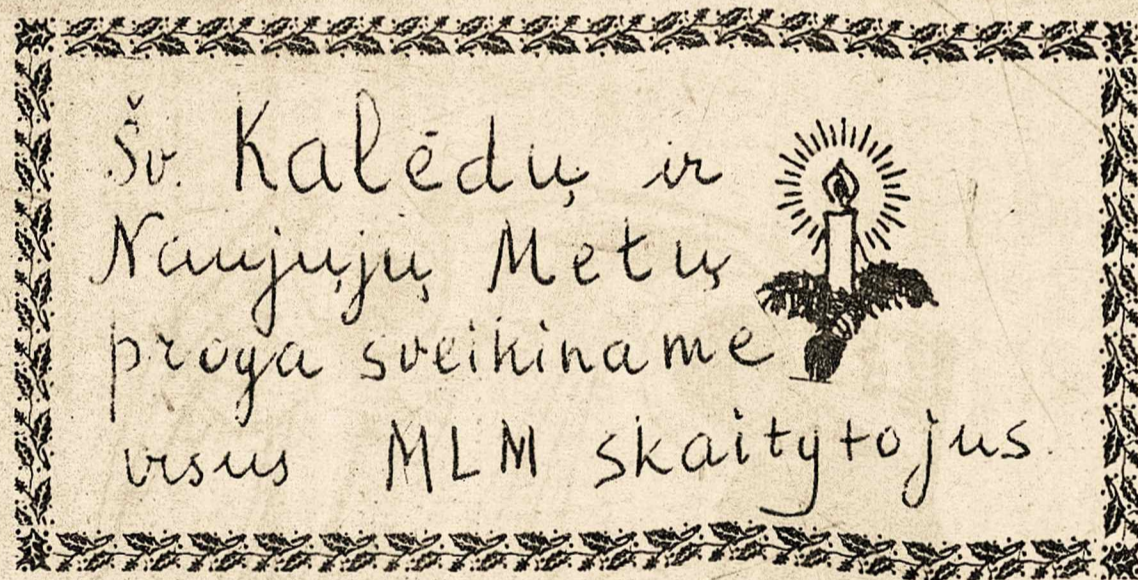 Šv. Kalėdų ir
Naujųjų Metų
proga sveikiname
visus MLM skaitytojus.